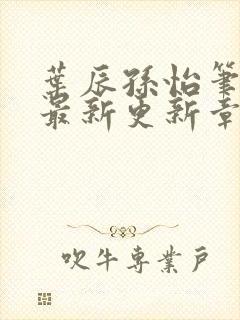 葉辰孫怡筆
最新更新章
吹牛專業戶